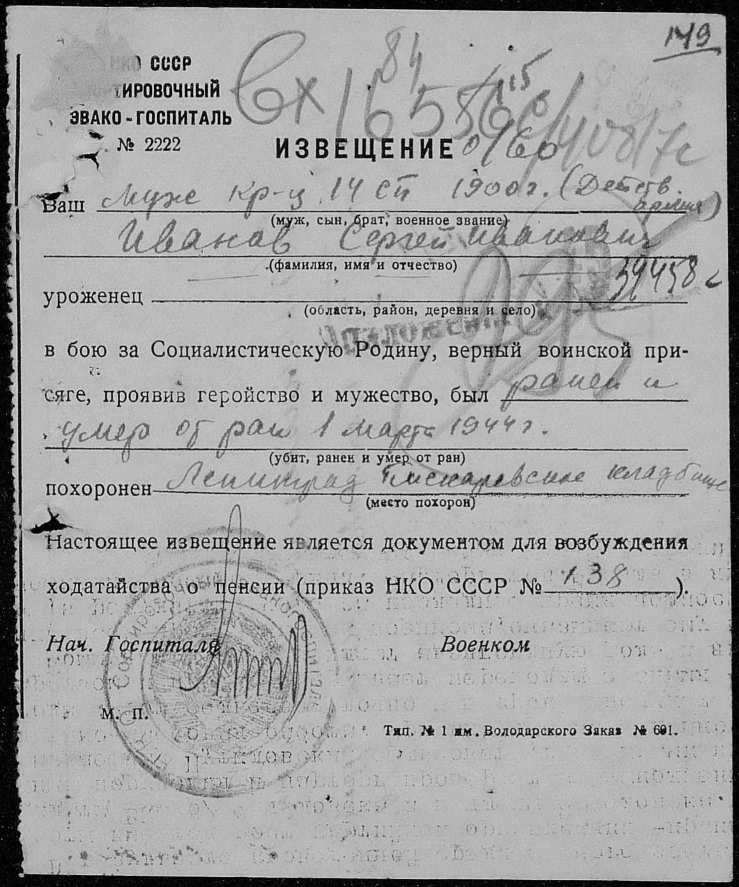 149
НКО СССР
СОРТИРОВОЧНЫЙ
ЭВАКО-ГОСПИТАЛЬ
№ 2222
84
Вх 16556
ИЗВЕЩЕНИЕ
Ваш муж кр-ц 14 сп 1900 г. (Действ. армия)
(муж, сын, брат, военное звание)
Иванов Сергей Иванович
(фамилия, имя и отчество)
39458с
уроженец
(область, район, деревня и село)
в бою за Социалистическую Родину, верный воинской при-
сяге, проявив геройство и мужество, был ранен и
умер от ран 1 марта 1944 г.
(убит, ранен и умер от ран)
похоронен Ленинград Пискаревское кладбище
(место похорон)
Настоящее извещение является документом для возбуждения
ходатайства о пенсии (приказ НКО СССР № 138).
Нач. Госпиталя Военком
М. П.
Тип. № 1 им. Володарского Заказ № 691.